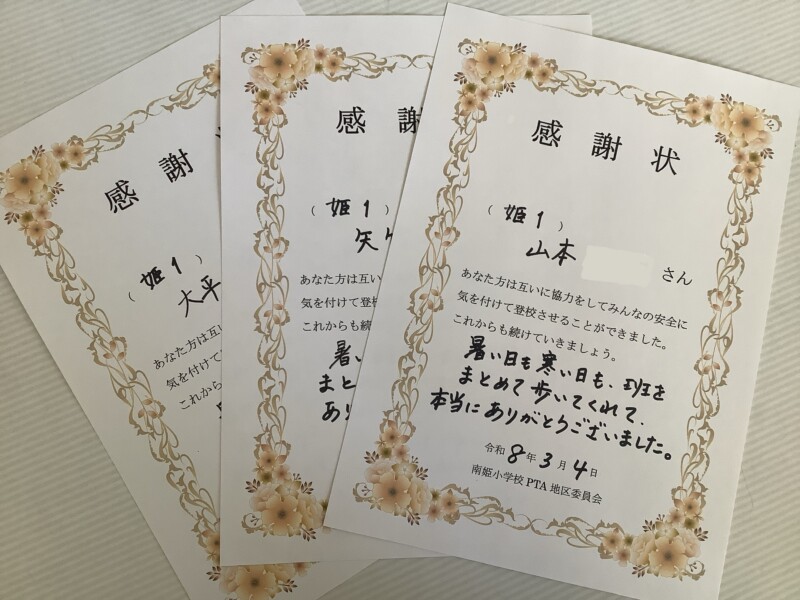 感謝状
（姫1）
大平
あなた方は互い
気を付けて
これから
感謝
（姫1）
矢
あなた方は互い
気を付けて登校
これからも続
暑い
まと
あり
感謝状
（姫1）
山本 さん
あなた方は互いに協力をしてみんなの安全に
気を付けて登校させることができました。
これからも続けていきましょう。
暑い日も寒い日も、班を
まとめて歩いてくれて、
本当にありがとうございました。
令和8年3月4日
南姫小学校PTA地区委員会